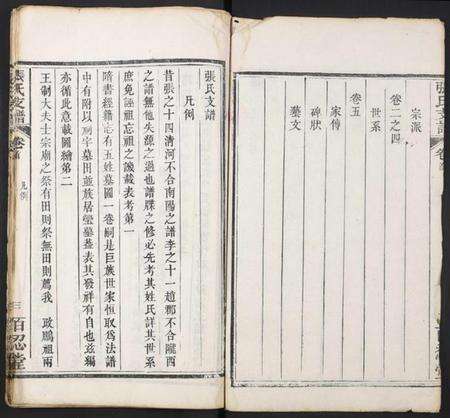 張氏支譜
卷首
宗派
卷二之四
世系
卷五
家傳
碑狀
藝文
張氏支譜
凡例
昔張之十四清河不合南陽之譜李之十一趙郡不合隴西
之譜無他失源之過也譜牒之修必先考其姓氏詳其世系
庶免誣祖忘祖之譏載表考第一
隋書經籍志有五姓墓圖一卷嗣是巨族世家恒取為法譜
中有附以祠宇墓田並族居塋墓蓋表其發祥有自也茲編
亦循此意載圖繪第二
王制大夫士宗廟之祭有田則祭無田則薦我
政鵬祖兩
張氏支譜
卷首
凡例
三
百忍堂